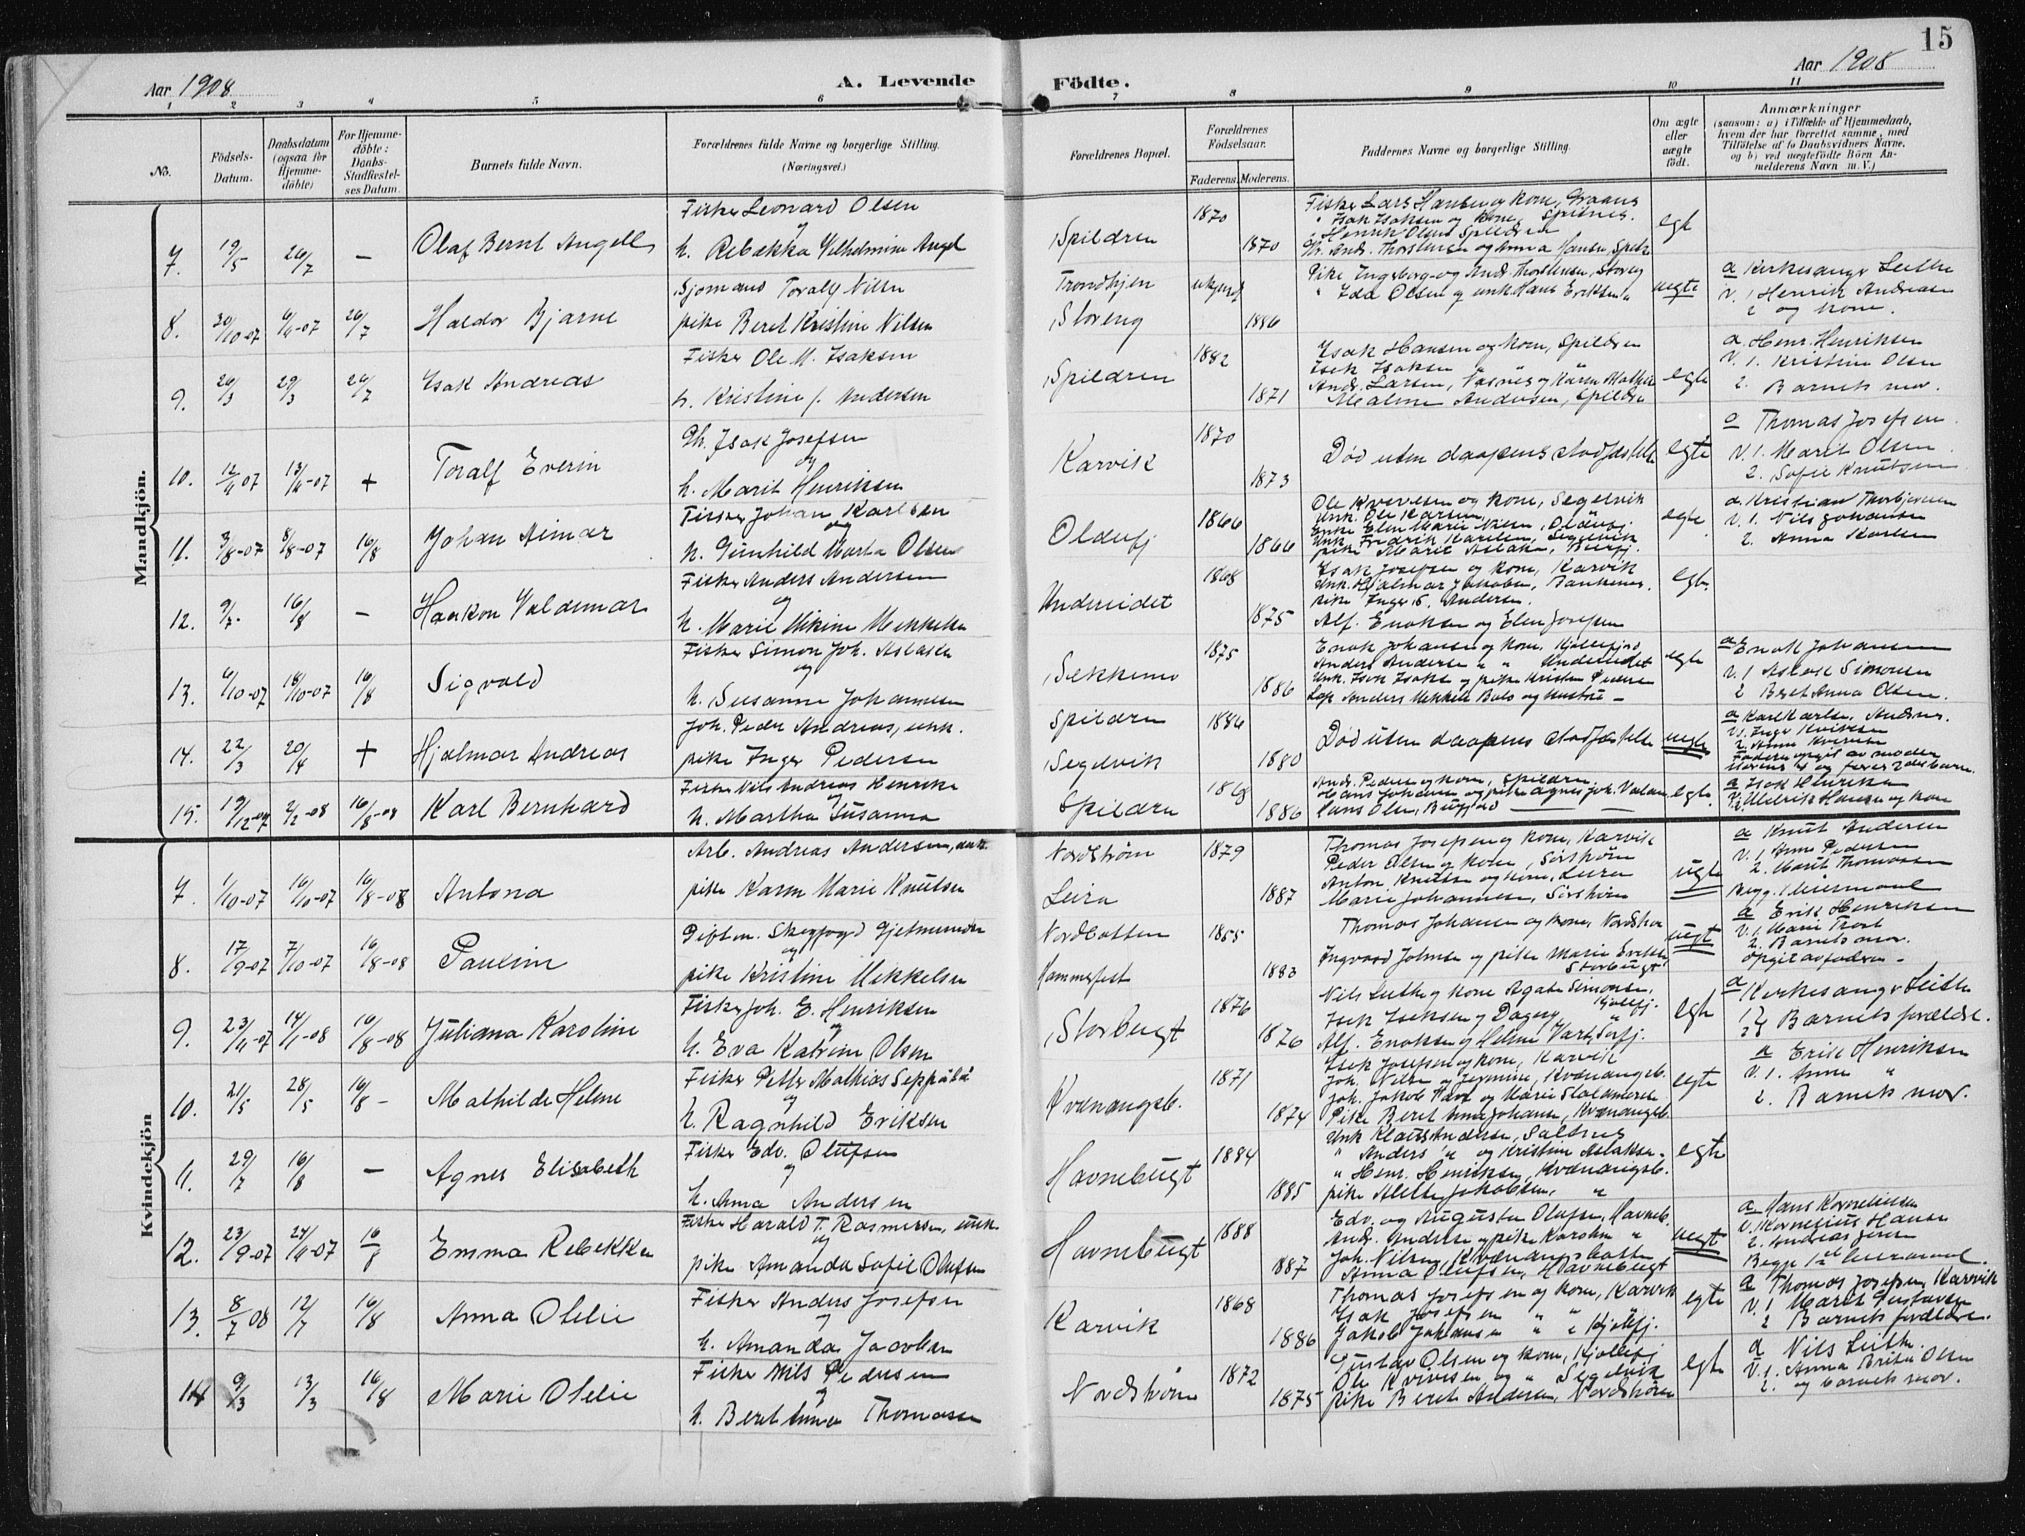 15
Aar 1908
A. Levende
Födte.
Aar 1908
1 2 3 4 5 6 7 8 9 10 11
No.
Födsels-Datum.
Daabsdatum (ogsaa för Hjemme-döbte)
For Hjemme-döbte: Daabs-Stadfæstelses Datum.
Barnets fulde Navn.
Forældrenes fulde Navne og borgerlige Stilling.
(Næringsvei.)
Forældrenes Bopæl.
Forældrenes Födselsaar.
Faderens. Moderens.
Faddernes Navne og borgerlige Stilling.
Om ægte eller uægte födt.
Anmærkninger
(saasom: a) i Tilfælde af Hjemmedaab,
hvem der har forrettet samme, med
Tilföielse af to Daabsvidners Navne,
og b) ved uægtefödte Börn An-
melderens Navn m. V.)
Mandkjön.
7. 19/5 26/7 – Olaf Bernt Angell
Fisker Leonard Olsen
og
h. Rebekka Vilhelmine Angel
Spildren 1870 1870
Fisker Lars Hansen og kone,
" Isak Isaksen og kone, Spilnes.
" Henrik Olsen Spildren
egt
8. 20/10-07 26/7 Haldor Bjarne
Sjömand Toralf Nilsen
pike Beret Kristine Nilsen
Trondhjem ukjend
Storeng 1886
uegte
a Kirkesanger Leithe
V. 1 Henrik Andreasen
2 og kone.
9. 20/3 29/3 26/7 Isak Andreas
Fisker Ole M. Isaksen
h. Kristine f. Andersen
Spildren 1882 1871
Isak Hansen og kone, Spildren
Isak Isaksen "
Malene Andersen, Spildren
egte
a. Henr. Henriksen
V. 1. Kristine Olsen
2. Barnets mor.
10. 12/4 07 13/4-07 + Toralf Everin
Gb. Isak Josefsen
og
h. Marit Henriksen
Karvik 1870 1873
Död uten daapens stadfæstelse
egte
a Thomas Josefsen.
V. 1. Marit Olsen
2. Sofie Knutsen
11. 3/8-07 8/8-07 16/8 Johan Aimar
Fisker Johan Karlsen
og
h. Gunhild Marta Olsen
Olderfj 1866 1866
Ole Kvivesen og kone, Segelvik
Unk. Ole Karlsen,
Enke Elen Marie Nilsen, Olderfj.
Unk. Fredrik Karlsen, Segelvik
egte
a. Kristian Thorbjørnsen
V. 1. Nils Johansen
2. Anna Karlsen
12. 9/7. 16/8 – Haakon Valdemar
Fisker Anders Andersen
og
h. Marie Mikine Mekkelsen
Undereidet 1868 1875
Isak Josefsen og kone, Karvik
Unk. Hjalmar Jakobsen,
pike Inger S. Andersen.
Alf. Enoksen og Elen Josefsen
egte
13. 6/10-07 18/10-07 16/8 Sigvald
Fisker Simon Joh. Aslaksen
og
h. Susanne Johannesen
Sekkemo 1875 1886
Enok Johansen og kone, Kjøllefjord
Anders Andersen " " Undereidet
Unk. Isak Isaksen og pike Kristen Pedersen
egte
a Enok Johansen
V. 1 Aslak Simonsen
2 Beret Anna Olsen.
14. 22/3 20/4 + Hjalmar Andreas
Joh. Peder Andreas, unk.
pike Inger Pedersen
Spildren 1886
Segelvik 1880
Död uten daapens stadfæstelse
uegte
a. Karl Karlsen,
V. 1. Inger Kvivesen
2. Anna Kvivesen
15. 19/12-07 2/2-08 16/8-08 Karl Bernhard
Fisker Nils Andreas Henriksen
og
h. Martha Susanna
Spildren 1868 1886
And. Pedersen og kone, Spildren
Hans Johansen og pike Agnes Joh.
Hans Olsen, Bugten
egte.
a Isak Henriksen
V. Henrik Hansen og kone
Kvindekjön
7. 1/10-07 16/10-07 16/8-08 Antona
Arb. Andreas Andersen, unk.
pike Karen Marie Knutsen
Nordstrøm 1879
Leira 1887
Thomas Josefsen og kone, Karvik
Peder Olsen og kone, Sørstrøm
Anton Knutsen og kone, Leira
Marie Johannesen, Sørstrøm
uegte
a Knut Andersen
V. 1, Anne Pedersen
2. Marit Thomassen
Begg. 1 leiermaal
8. 17/9-07 7/10-07 16/8-08 Pauline
Gift m. Skogfogd Gjetmundsen
og
pike Kristine Mikkelsen
Nordbotten 1855
Hammerfest 1883
Thomas Johansen og kone, Nordstrøm
Ingvard Johnsen og pike Marie Eriksen
Storbugt
uegt
a Erik Henriksen
V. 1. Marie Trost
2. Barnets mor.
opgit av faderen –
9. 23/11-07 14/1-08 16/8-08 Juliana Karoline
Fisker Joh. E. Henriksen
og
h. Eva Katrine Olsen
Storbugt 1876 1876
Nils Leithe og kone Agate Simonsen,
Isak Isaksen og Dagny Kjøllefj.
Alf. Enoksen og Helene
egte
a Kirkesanger Leithe
1 2 } Barnets forældre.
10. 21/5 28/5 16/8 – Mathilde Helene
Fisker Petter Mathias Seppälä
og
h. Ragnhild Eriksen
Kvænangsb. 1871 1874
Isak Josefsen og kone, Karvik
Joh. Nilsen og Jermine, Kvænangsb.
Pike Beret Anna Johansen, Kvænangsb.
egte
a Erik Henriksen
V. 1. Anne "
2. Barnets mor.
11. 29/7 16/8 – Agnes Elisabeth
Fisker Edv. Olufsen
og
h. Anna Andersen
Havnebugt 1884 1885
Unk Klaus Andersen, Saltnes
" Anders " og Kristine Aslaksen.
" Henr. Henriksen, Kvænangsb.
pike Alette Jakobsen, "
egte
12. 23/9-07 24/9-07 16/8 Emma Rebekka
Fisker Harald T. Rasmussen, unk.
og
pike Amanda Sofie Olufsen
Havnebugt 1888 1887
Edv. og Augusta Olufsen, Havneb.
And. Andersen og pike Karoline "
Joh. Nilsen, Kvænangsbotten
Anna Olufsen, Havnebugt
uegt
a Hans Korneliussen
V. Kornelius Hansen
2. Andreas Jensen
Begge 1ste leiermaal.
13. 8/7 08 12/7 16/8 Anna Oleli
Fisker Anders Josefsen
og
h. Amanda Jacobsen
Karvik 1868 1886
Thomas Josefsen og kone, Karvik
Isak Josefsen " " "
Jakob Johansen " " Kjøllefj.
egte
a Thomas Josefsen, Karvik
V. 1 Marit Gustavsen
2 Barnets forældre.
14 9/3 13/3 16/8 Marie Oleli
Fisker Nils Pedersen
og
h. Beret Anna Thomassen
Nordstrøm 1872 1875
Gustav Olsen og kone, Kjøllefj
Ole Kvivesen og " Segelvik
pike Beret Andersen, Nordstrøm
egte
a Nils Leithe.
V. 1. Anna Brita Olsen
2. og barnets mor.